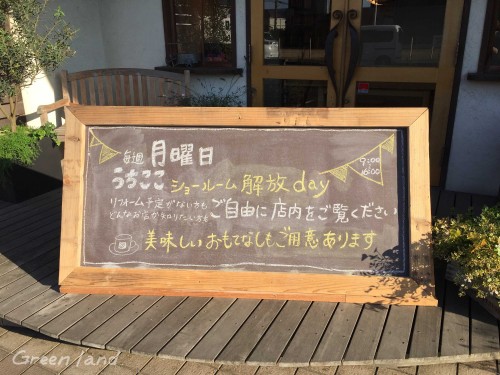 毎週 月曜日
うちここ ショールーム 解放 day
9:00
16:00
リフォーム予定がない方も
どんなお店か知りたい方も
ご自由に店内をご覧ください
美味しいおもてなしもご用意あります
Green land